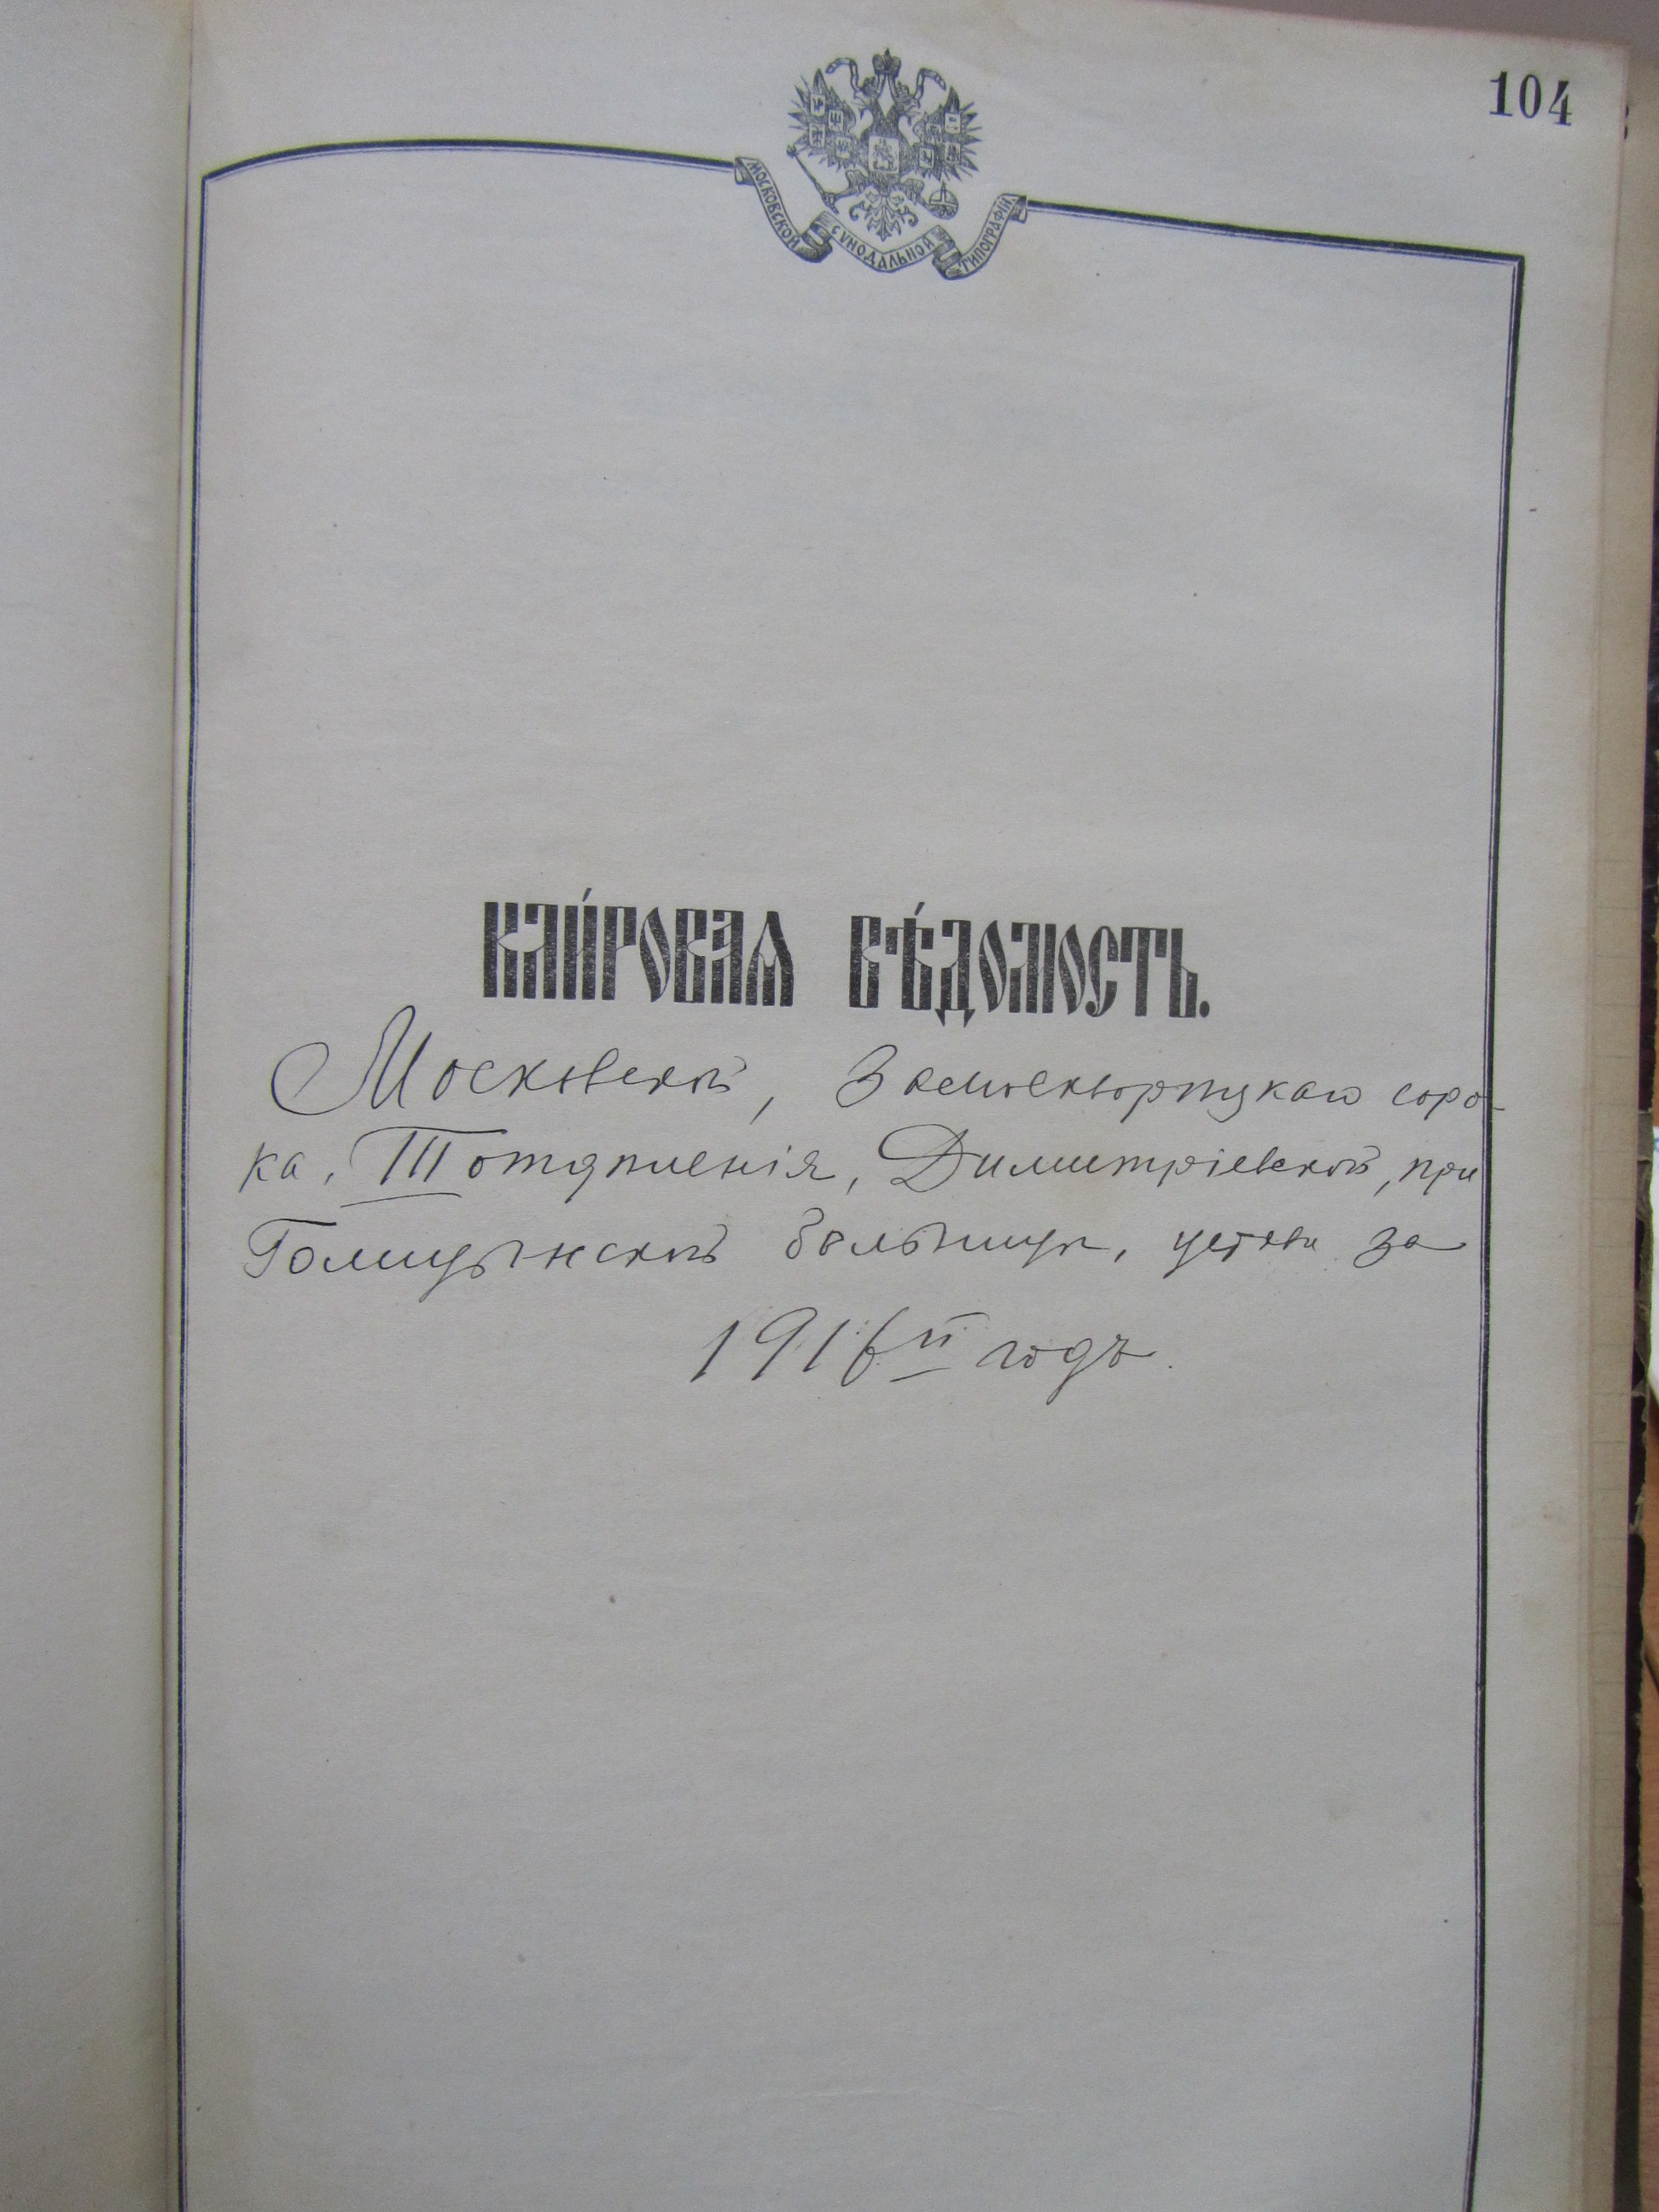 104
МОСКОВСКОЙ СѴНОДАЛЬНОЙ ТИПОГРАФІИ
КЛИ́РОВАЯ ВѢ́ДОМОСТЬ.
Московской, Замоскворецкаго соро-
ка, III отдѣленія, Димитріевской, при
Голицынской больницѣ, церкви за
1916й годъ.